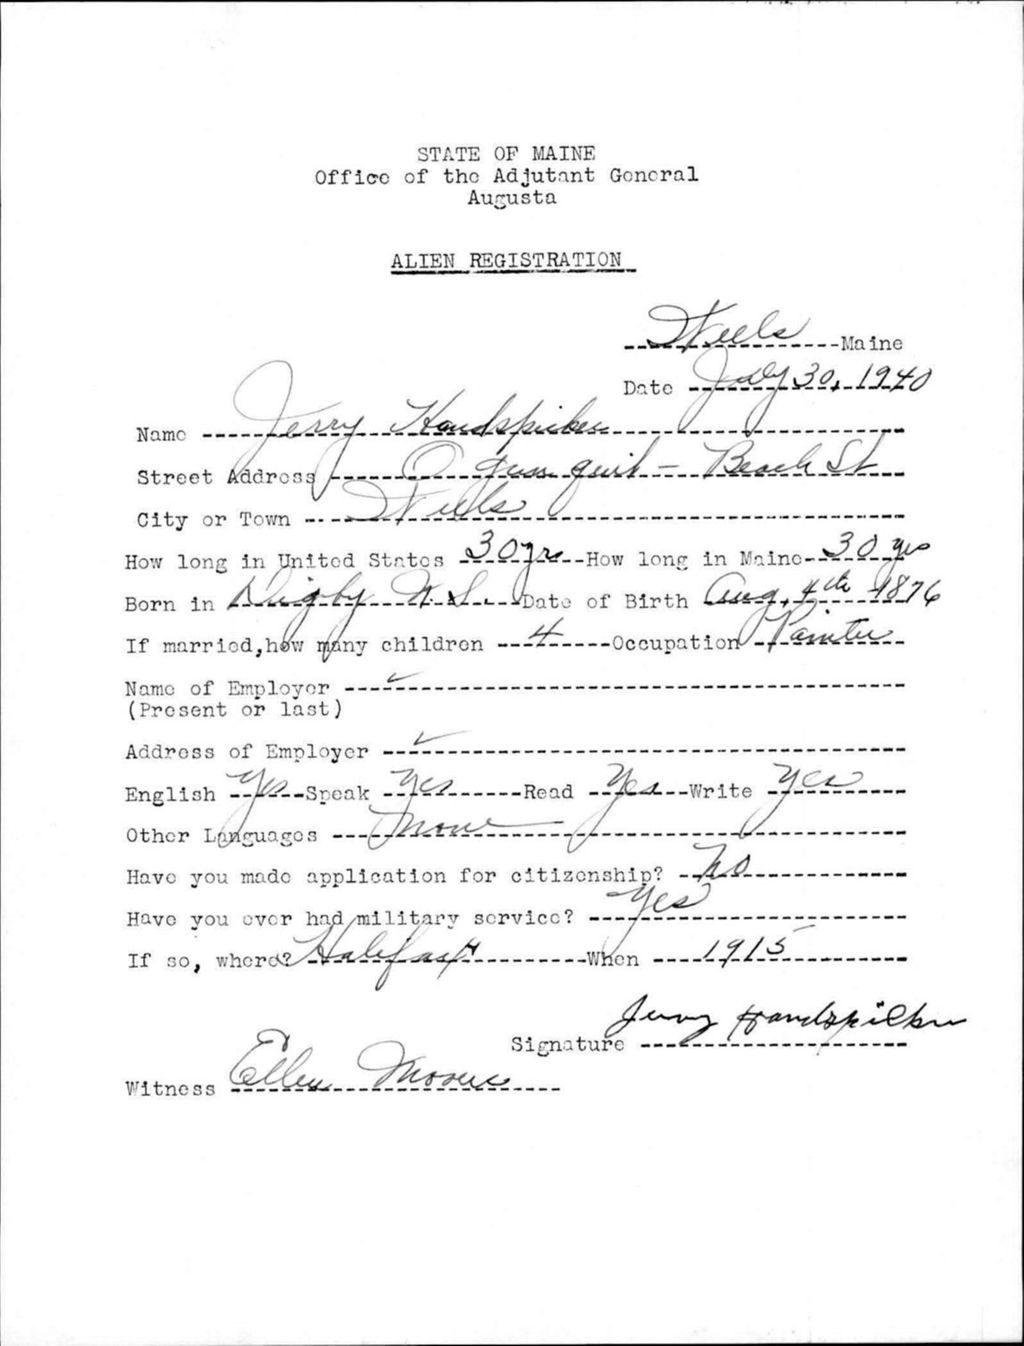 STATE OF MAINE
Office of the Adjutant General
Augusta
ALIEN REGISTRATION
Wells Maine
Date July 30, 1940
Name Jerry Handspiker
Street Address Ogunquit - Beach St
City or Town Wells
How long in United States 30 yrs How long in Maine 30 yrs
Born in Digby N.S. Date of Birth Aug. 4th 1876
If married, how many children 4 Occupation Painter
Name of Employer ✓
(Present or last)
Address of Employer ✓
English Yes Speak Yes Read Yes Write Yes
Other Languages None
Have you made application for citizenship? No
Have you ever had military service? Yes
If so, where? Halifax When 1915
Signature Jerry Handspiker
Witness Ellen Moore